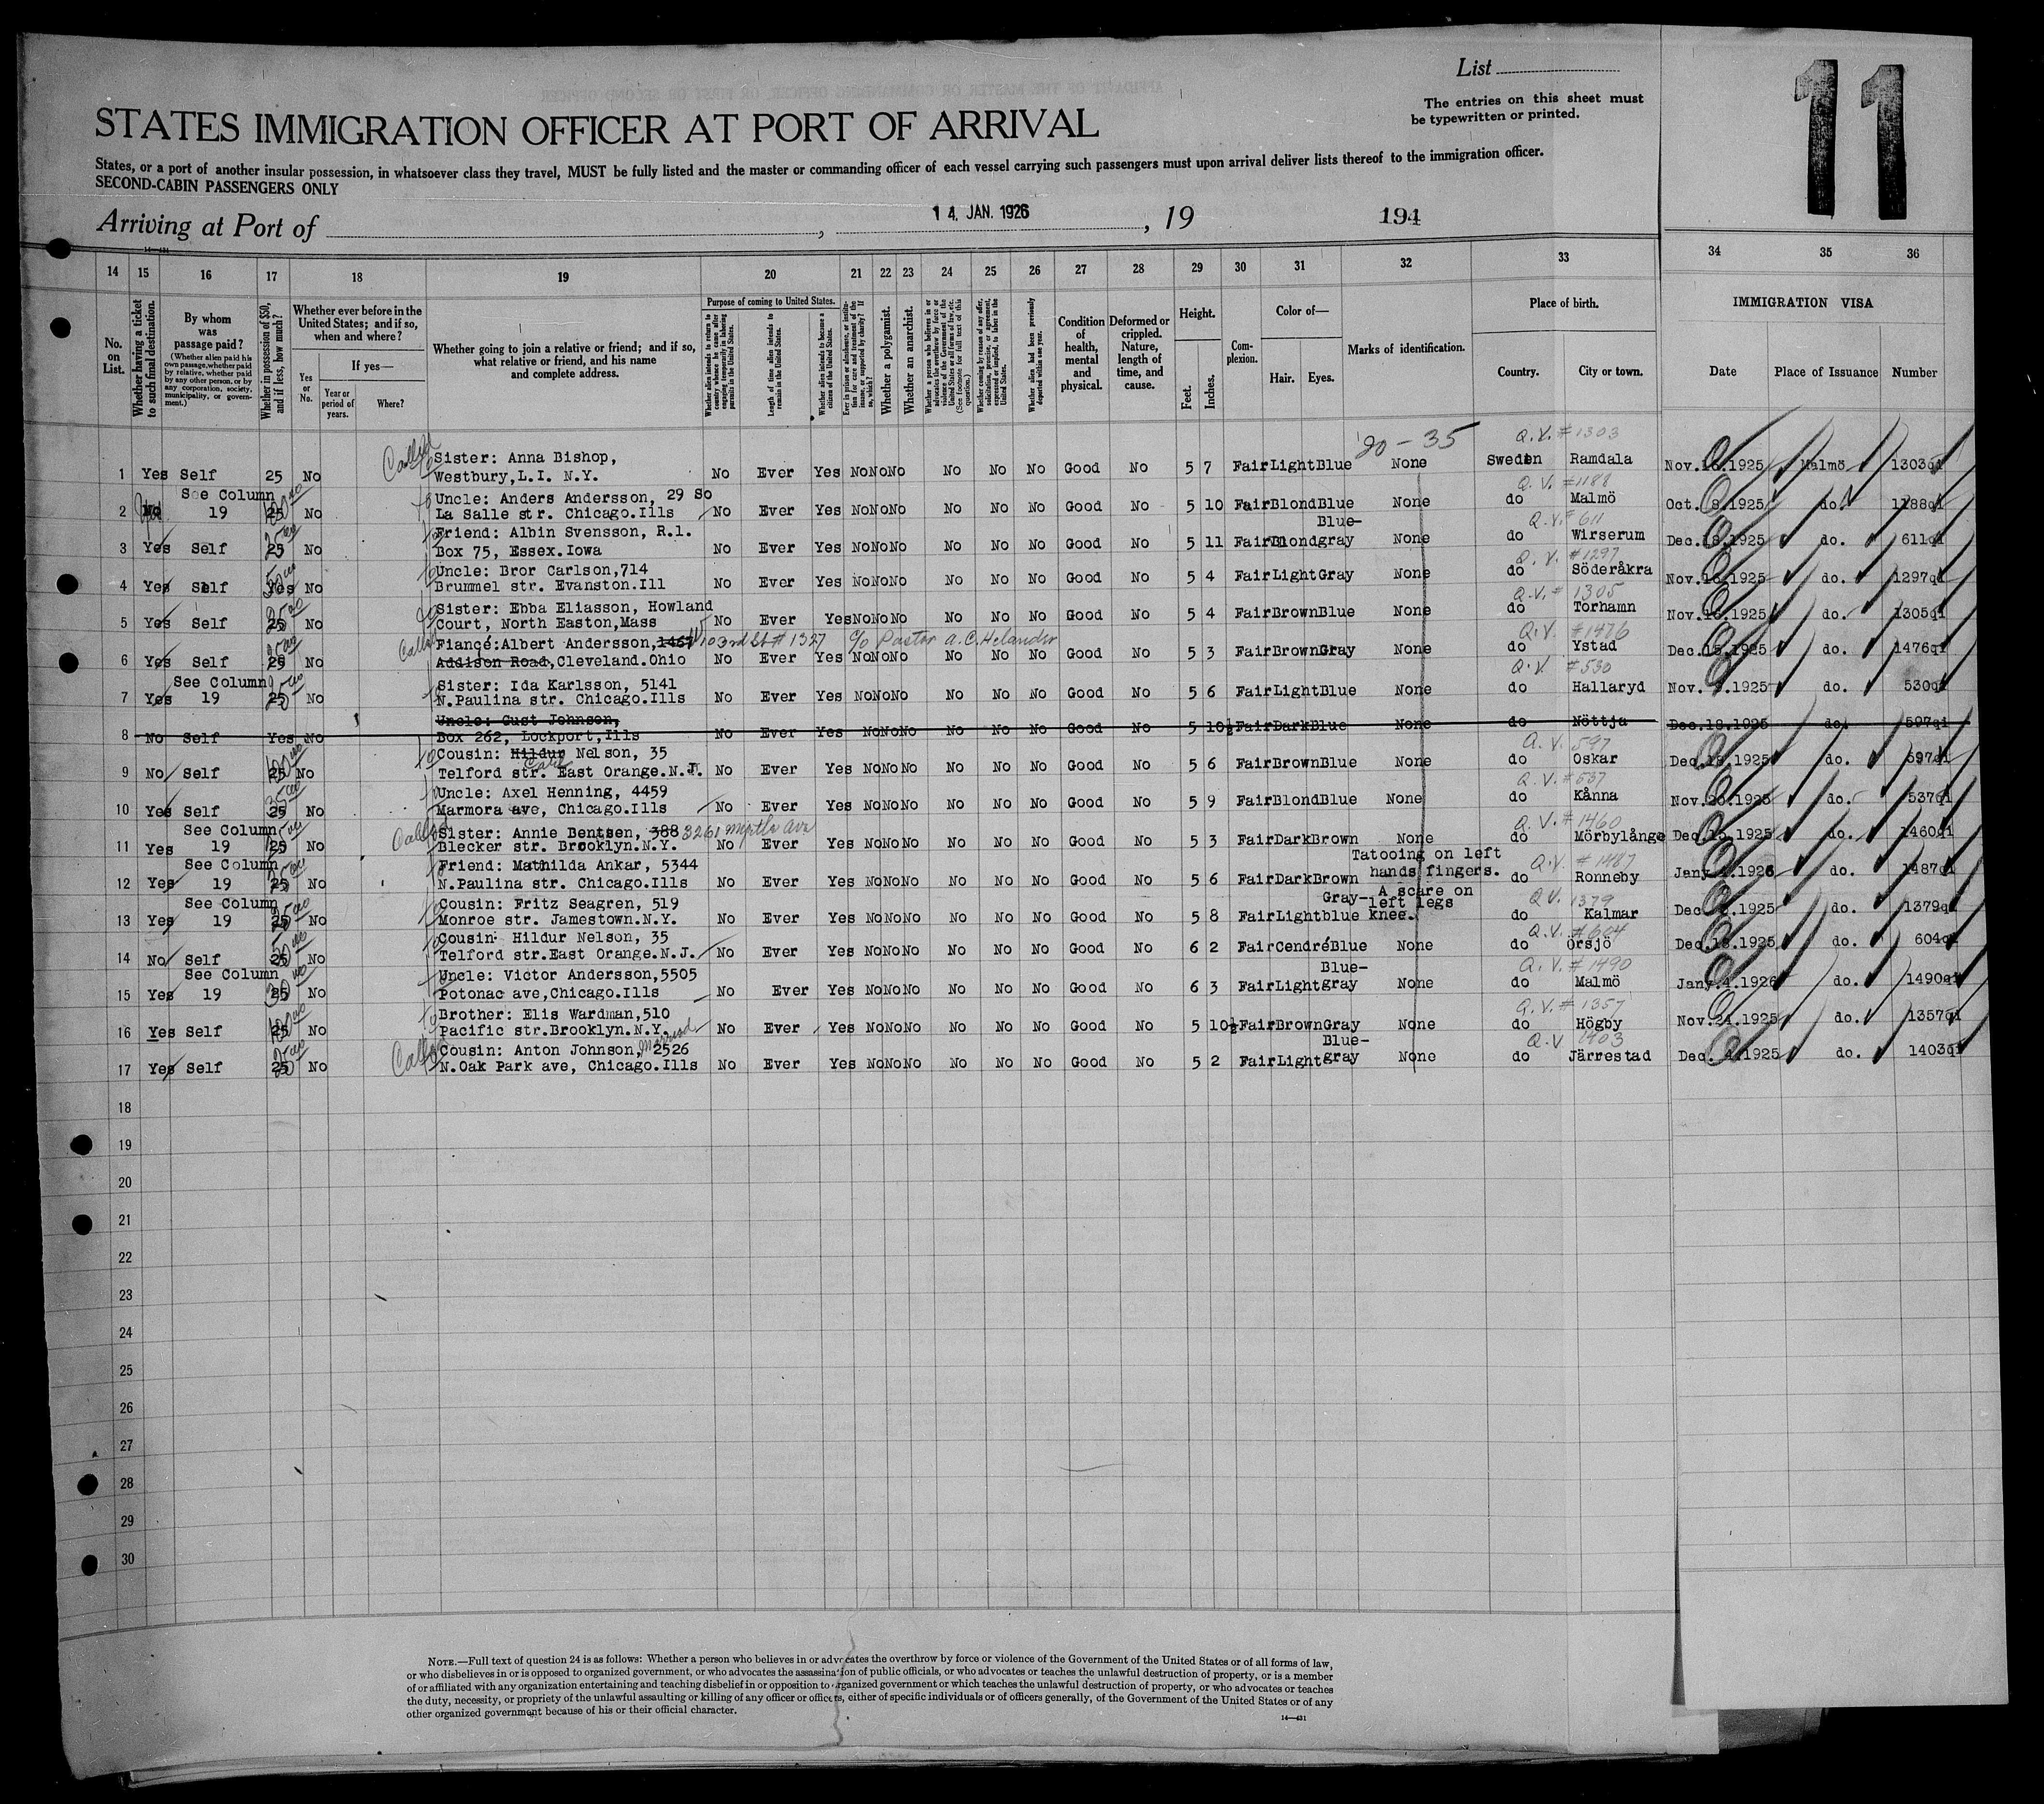 List
The entries on this sheet must
be typewritten or printed.
11
STATES IMMIGRATION OFFICER AT PORT OF ARRIVAL
States, or a port of another insular possession, in whatsoever class they travel, MUST be fully listed and the master or commanding officer of each vessel carrying such passengers must upon arrival deliver lists thereof to the immigration officer.
SECOND-CABIN PASSENGERS ONLY
Arriving at Port of , 14 JAN. 1926 , 19 194
14 15 16 17 18 19 20 21 22 23 24 25 26 27 28 29 30 31 32 33 34 35 36
No. on List.
Whether having a ticket to such final destination.
By whom was passage paid?
(Whether alien paid his own passage, whether paid by relative, whether paid by any other person, or by any corporation, society, municipality, or government.)
Whether in possession of $50, and if less, how much?
Whether ever before in the United States; and if so, when and where?
If yes—
Yes or No.
Year or period of years.
Where?
Whether going to join a relative or friend; and if so, what relative or friend, and his name and complete address.
Purpose of coming to United States.
Whether alien intends to return to country whence he came after engaging temporarily in laboring pursuits in the United States.
Length of time alien intends to remain in the United States.
Whether alien intends to become a citizen of the United States.
Ever in prison or almshouse, or institution for care and treatment of the insane, or supported by charity? If so, which?
Whether a polygamist.
Whether an anarchist.
Whether a person who believes in or advocates the overthrow by force or violence of the Government of the United States or all forms of law, etc. (See footnote for full text of this question.)
Whether coming by reason of any offer, solicitation, promise, or agreement, expressed or implied, to labor in the United States.
Whether alien had been previously deported within one year.
Condition of health, mental and physical.
Deformed or crippled. Nature, length of time, and cause.
Height.
Feet. Inches.
Complexion.
Color of—
Hair. Eyes.
Marks of identification.
Place of birth.
Country. City or town.
IMMIGRATION VISA
Date Place of Issuance Number
20-35 Q.V. #1303
Called to Sister: Anna Bishop,
1 Yes Self 25 No Westbury,L.I. N.Y. No Ever Yes No No No No No No Good No 5 7 Fair Light Blue None Sweden Ramdala Nov.16.1925 Malmö 1303qi
See Column Uncle: Anders Andersson, 29 So Q.V. #1188
2 No 19 25 No La Salle str. Chicago.Ills No Ever Yes No No No No No No Good No 5 10 Fair Blond Blue None do Malmö Oct. 8.1925 do. 1188qi
Friend: Albin Svensson, R.1. Blue- Q.V.# 611
3 Yes Self 25 No Box 75, Essex.Iowa No Ever Yes No No No No No No Good No 5 11 Fair Blond gray None do Wirserum Dec.18.1925 do. 611qi
Uncle: Bror Carlson,714 Q.V. #1297
4 Yes Self Yes No Brummel str. Evanston.Ill No Ever Yes No No No No No No Good No 5 4 Fair Light Gray None do Söderåkra Nov.16.1925 do. 1297qi
Sister: Ebba Eliasson, Howland Q.V.# 1305
5 Yes Self 25 No Court, North Easton,Mass No Ever Yes No No No No No No Good No 5 4 Fair Brown Blue None do Torhamn Nov.16.1925 do. 1305qi
Called Fiancé:Albert Andersson,1467 103rd St # 1327 c/o Pastor A.C. Helander Q.V. #1476
6 Yes Self 25 No Addison Road,Cleveland.Ohio No Ever Yes No No No No No No Good No 5 3 Fair Brown Gray None do Ystad Dec.15.1925 do. 1476qi
See Column Sister: Ida Karlsson, 5141 Q.V. #530
7 Yes 19 25 No N.Paulina str. Chicago.Ills No Ever Yes No No No No No No Good No 5 6 Fair Light Blue None do Hallaryd Nov. .1925 do. 530qi
Uncle: Gust Johnson,
8 No Self Yes No Box 262, Lockport,Ills No Ever Yes No No No No No No Good No 5 10½ Fair Dark Blue None do Nöttja Dec.18.1925 do. 597qi
Cousin: Hildur Nelson, 35 Q.V. 597
9 No Self 25 No Telford str. East Orange.N.J. No Ever Yes No No No No No No Good No 5 6 Fair Brown Blue None do Oskar Dec.18.1925 do. 597qi
Uncle: Axel Henning, 4459 Q.V.#537
10 Yes Self 25 No Marmora ave, Chicago.Ills No Ever Yes No No No No No No Good No 5 9 Fair Blond Blue None do Kånna Nov.20.1925 do. 537qi
See Column Called Sister: Annie Bentsen, 388 3261 Myrtle Ave Q.V.#1460
11 Yes 19 25 No Blecker str. Brooklyn.N.Y. No Ever Yes No No No No No No Good No 5 3 Fair Dark Brown None do Mörbylånge Dec.15.1925 do. 1460qi
See Column Friend: Mathilda Ankar, 5344 Tatooing on left Q.V. #1487
12 Yes 19 25 No N.Paulina str. Chicago.Ills No Ever Yes No No No No No No Good No 5 6 Fair Dark Brown hands fingers. do Ronneby Jany. .1926 do. 1487qi
See Column Cousin: Fritz Seagren, 519 Gray- A scare on left legs Q.V. 1379
13 Yes 19 25 No Monroe str. Jamestown.N.Y. No Ever Yes No No No No No No Good No 5 8 Fair Light blue knee. do Kalmar Dec. .1925 do. 1379qi
Cousin: Hildur Nelson, 35 Q.V.#604
14 No Self 25 No Telford str.East Orange.N.J. No Ever Yes No No No No No No Good No 6 2 Fair Cendré Blue None do Örsjö Dec.18.1925 do. 604qi
See Column Uncle: Victor Andersson,5505 Blue- Q.V.#1490
15 Yes 19 25 No Potonac ave,Chicago.Ills No Ever Yes No No No No No No Good No 6 3 Fair Light gray None do Malmö Jany.4.1926 do. 1490qi
Brother: Elis Wardman,510 Q.V.#1357
16 Yes Self 25 No Pacific str.Brooklyn.N.Y. No Ever Yes No No No No No No Good No 5 10½ Fair Brown Gray None do Högby Nov.24.1925 do. 1357qi
Called Cousin: Anton Johnson, Married 2526 Blue- Q.V 1403
17 Yes Self 25 No N.Oak Park ave, Chicago.Ills No Ever Yes No No No No No No Good No 5 2 Fair Light gray None do Järrestad Dec. 4.1925 do. 1403qi
18
19
20
21
22
23
24
25
26
27
28
29
30
NOTE.—Full text of question 24 is as follows: Whether a person who believes in or advocates the overthrow by force or violence of the Government of the United States or of all forms of law,
or who disbelieves in or is opposed to organized government, or who advocates the assassination of public officials, or who advocates or teaches the unlawful destruction of property, or is a member
of or affiliated with any organization entertaining and teaching disbelief in or opposition to organized government or which teaches the unlawful destruction of property, or who advocates or teaches
the duty, necessity, or propriety of the unlawful assaulting or killing of any officer or officers, either of specific individuals or of officers generally, of the Government of the United States or of any
other organized government because of his or their official character.
14—431